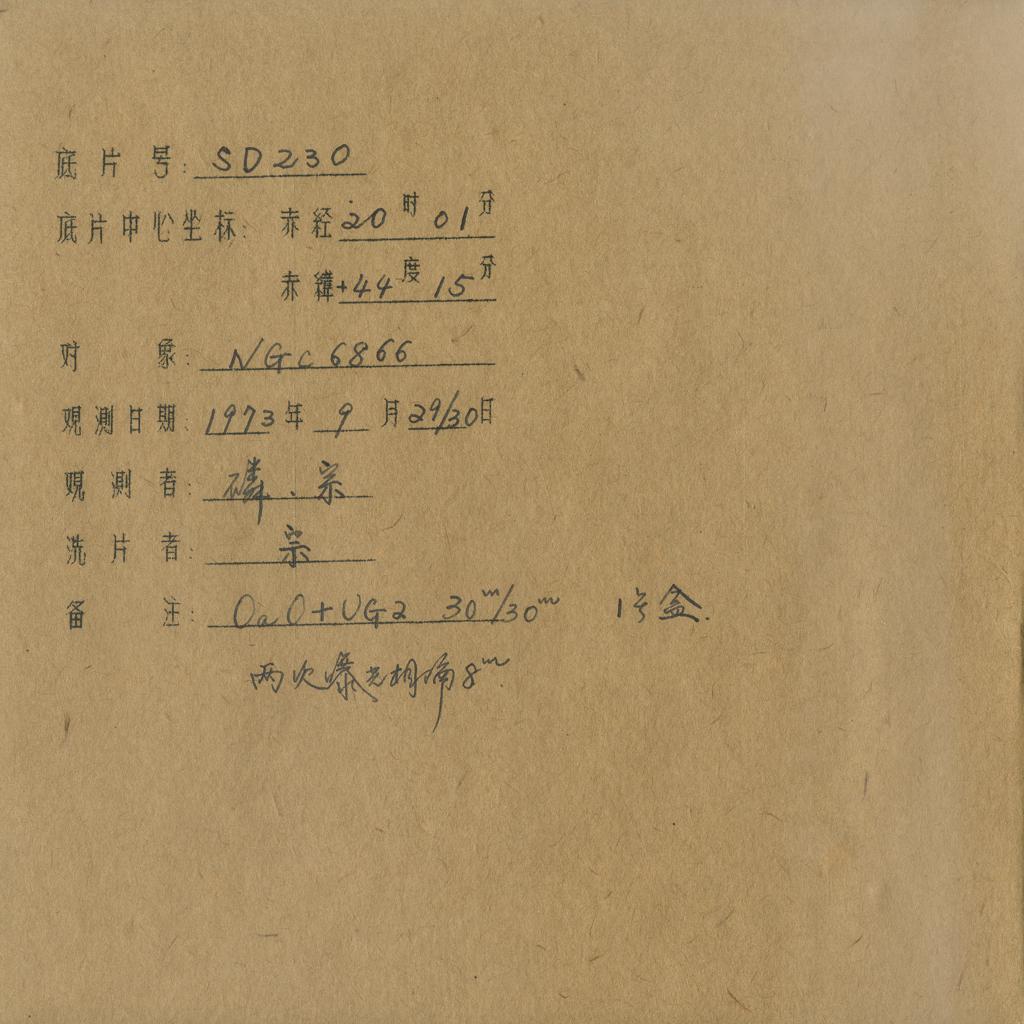 底片号: SD230
底片中心坐标: 赤経 20时 01分
赤緯 +44度 15分
对象: NGC 6866
观測日期: 1973年 9月 29/30日
观測者: 磷、宗
洗片者: 宗
备注: OaO+UG2 30m/30m 1号盒.
两次曝光相隔8m.